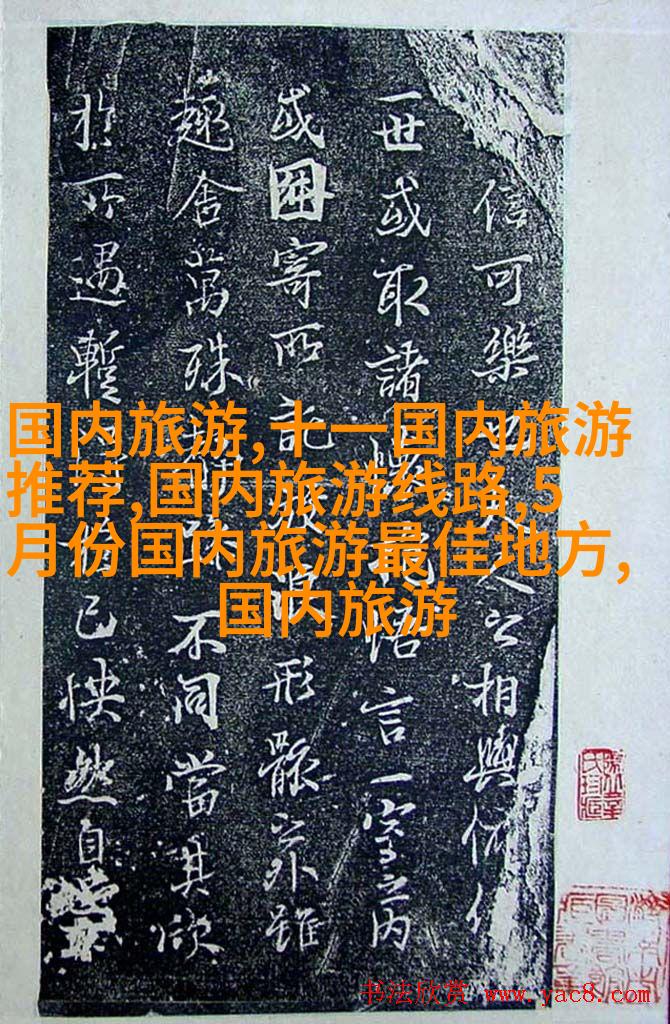 信可樂也夫人之相與俯仰
一世或取諸懷抱悟言一室之內
或因寄所託放浪形骸之外雖
趣舍萬殊靜躁不同當其欣
於所遇暫得於己怏然自
国内旅游,十一国内旅游
推荐,国内旅游线路,5
月份国内旅游最佳地方,
国内旅游
书法欣赏 www.yac8.com